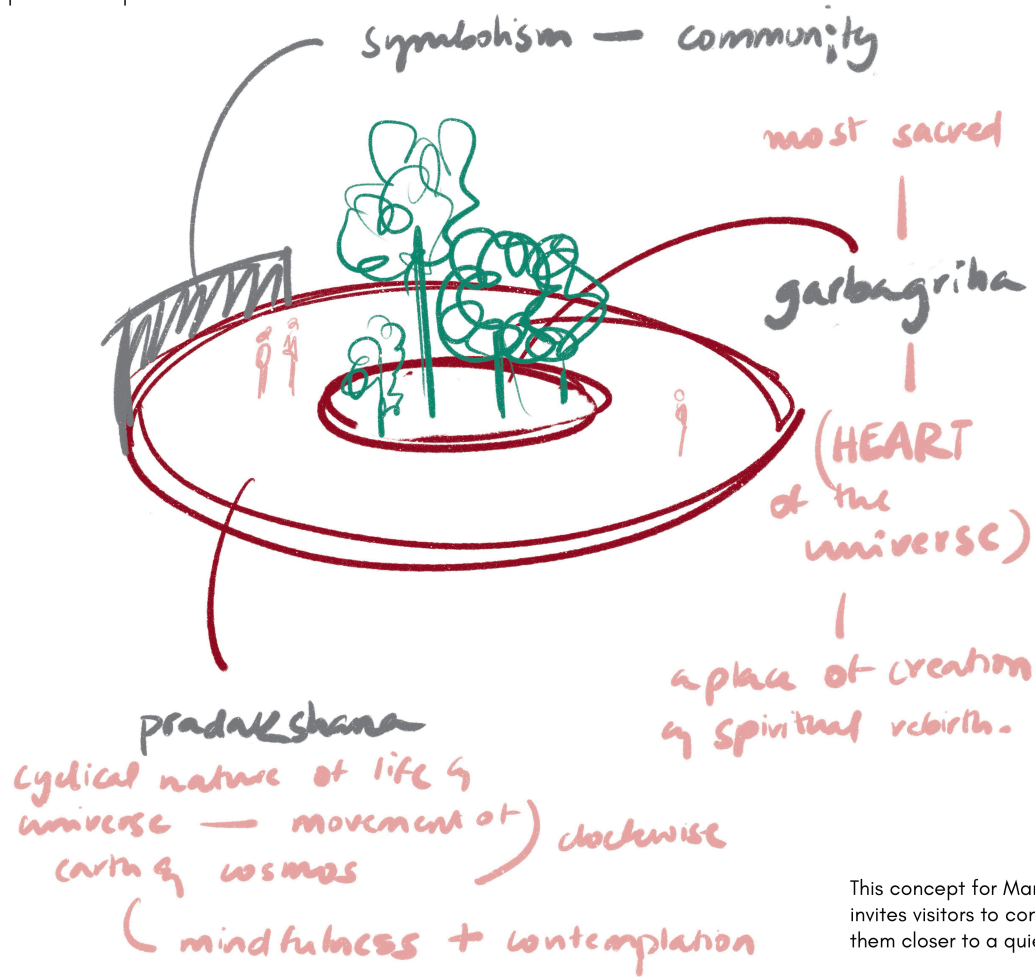 symbolism — community
most sacred
garbagriha
(HEART
of the
universe)
a place of creation
& spiritual rebirth.
pradakshana
cyclical nature of life &
universe — movement of
earth & cosmos
clockwise
mindfulness + contemplation
This concept for Mar
invites visitors to con
them closer to a quie